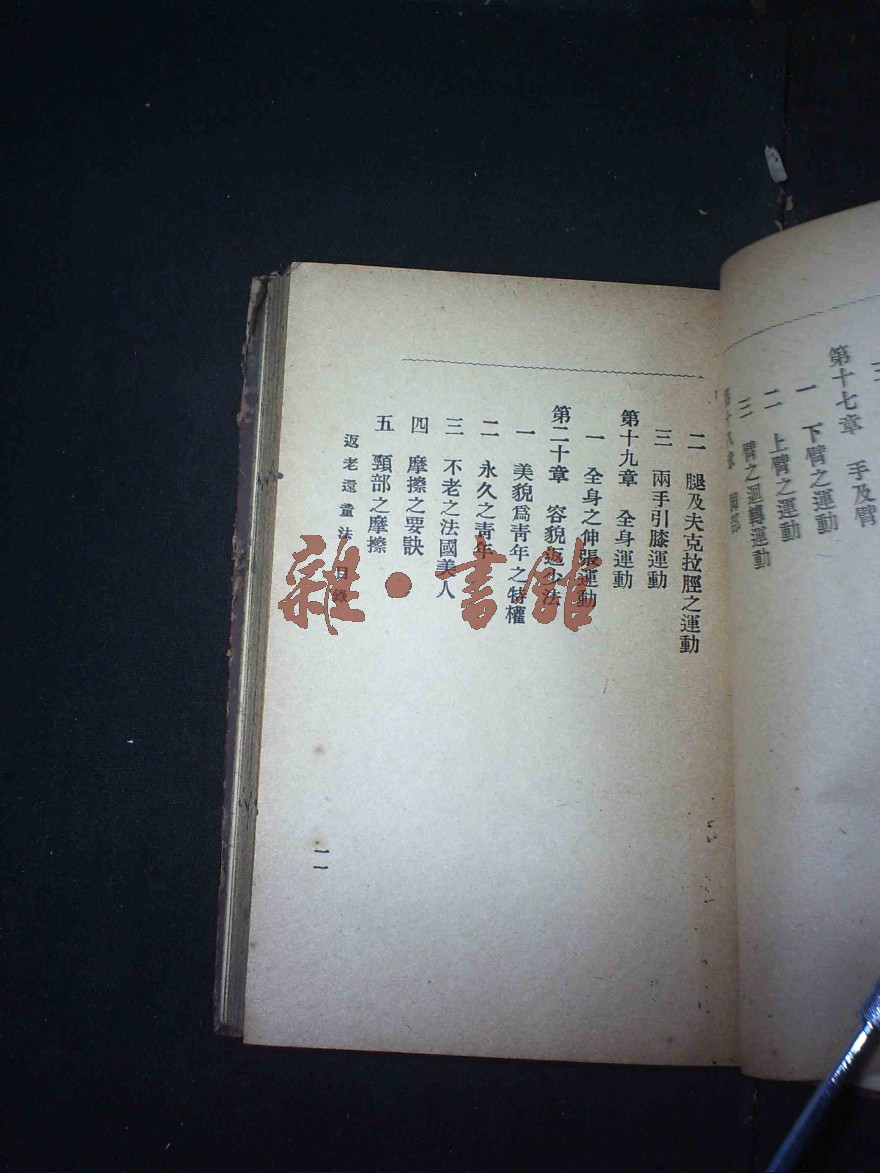 三
第十七章　手及臂
一　下臂之運動
二　上臂之運動
三　臂之迴轉運動
第十八章
二　腿及夫克拉脛之運動
三　兩手引膝運動
第十九章　全身運動
一　全身之伸張運動
第二十章　容貌返少法
一　美貌爲靑年之特權
二　永久之靑年
三　不老之法國美人
四　摩擦之要訣
五　頸部之摩擦
返老還童法　目錄
一一
雜·書館